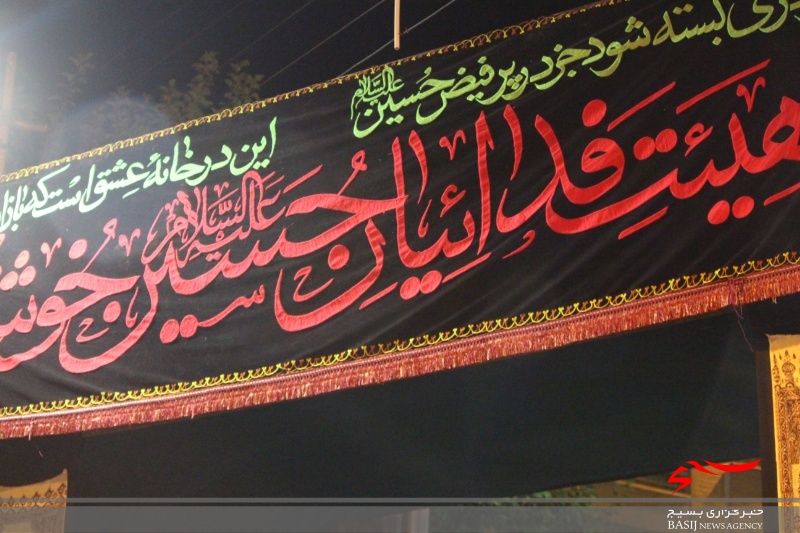 بسته شود جز در پر فیض حسین علیه السلام
این در خانهٔ عشق است که
هیئت فدائیان حسین علیه السلام
خبرگزاری بسیج
BASIJ NEWS AGENCY